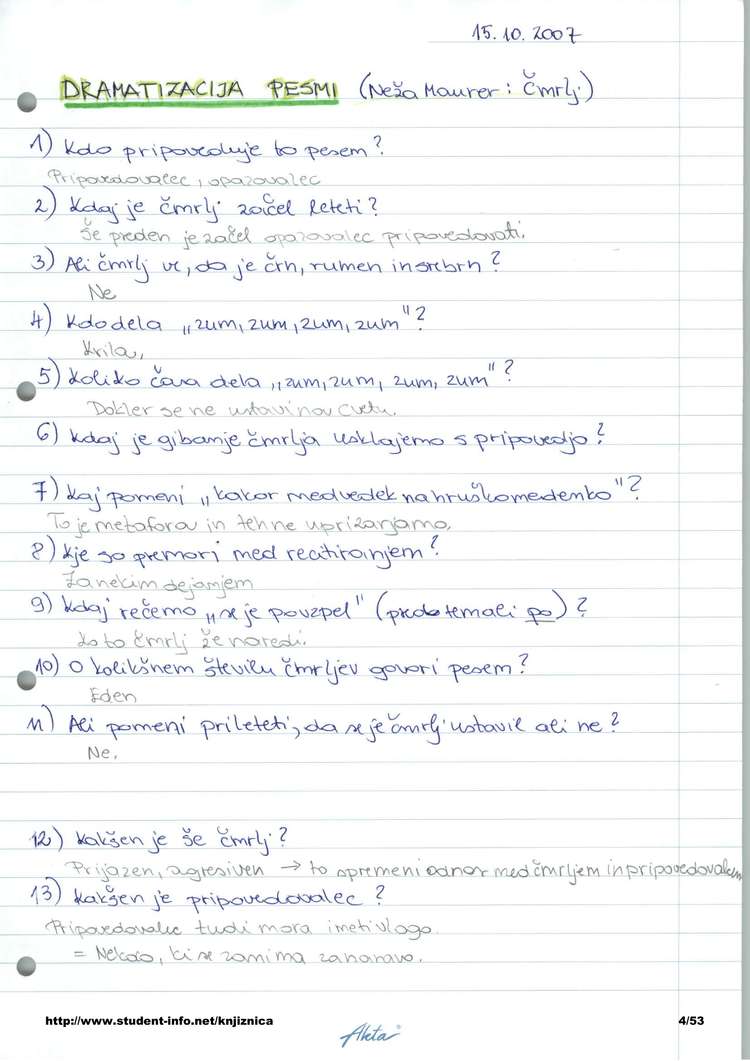 15. 10. 2007
DRAMATIZACIJA PESMI (Neža Maurer: Čmrlj)
1) Kdo pripoveduje to pesem?
Pripovedovalec, opazovalec
2) Kdaj je čmrlj začel leteti?
Še preden je začel opazovalec pripovedovati.
3) Ali čmrlj ve, da je črn, rumen in srebrn?
Ne
4) Kdo dela „zum, zum, zum, zum"?
Krila,
5) Koliko časa dela „zum, zum, zum, zum"?
Dokler se ne ustavi na cvetu.
6) Kdaj je gibanje čmrlja usklajeno s pripovedjo?
7) Kaj pomeni „kakor medvedek na hruško medenko"?
To je metafora in teh ne uprizarjamo.
8) Kje so premori med recitiranjem?
Za nekim dejanjem
9) Kdaj rečemo „se je povzpel" (pred tem ali po)?
Ko to čmrlj že naredi.
10) O kolikšnem številu čmrljev govori pesem?
Eden
11) Ali pomeni prileteti, da se je čmrlj ustavil ali ne?
Ne.
12) Kakšen je še čmrlj?
Prijazen, agresiven → to spremeni odnos med čmrljem in pripovedovalcem
13) Kakšen je pripovedovalec?
Pripovedovalec tudi mora imeti vlogo.
= Nekdo, ki se zanima za naravo.
http://www.student-info.net/knjiznica
Akta
4/53